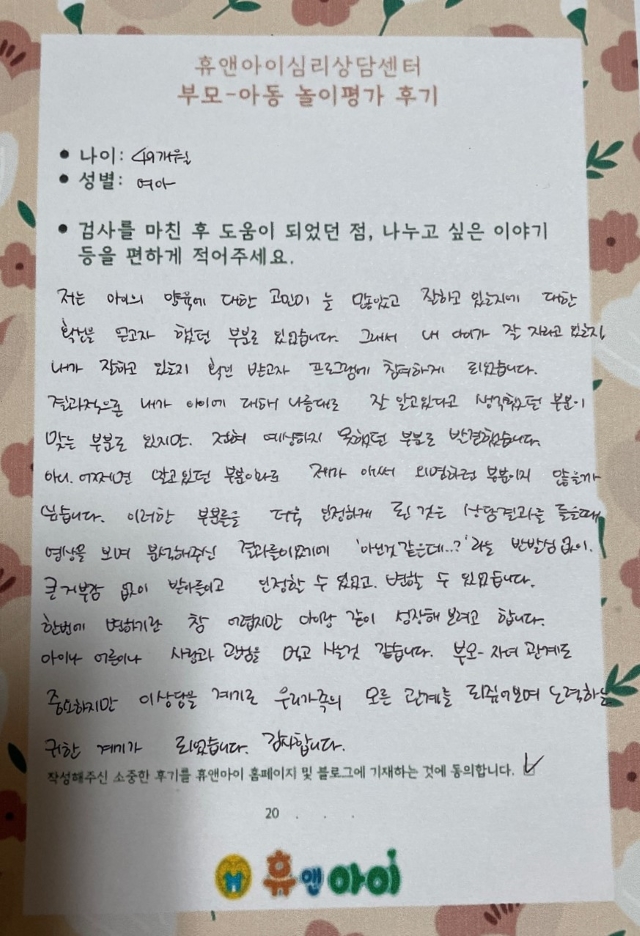 휴앤아이심리상담센터
부모-아동 놀이평가 후기
• 나이: 49개월
• 성별: 여아
• 검사를 마친 후 도움이 되었던 점, 나누고 싶은 이야기
등을 편하게 적어주세요.
저는 아이의 양육에 대한 고민이 늘 많았고 잘하고 있는지에 대한
확신을 얻고자 했던 부분도 있었습니다. 그래서 내 아이가 잘 자라고 있는지,
내가 잘하고 있는지 확인 받고자 프로그램에 참여하게 되었습니다.
결과적으론 내가 아이에 대해 나름대로 잘 알고있다고 생각했던 부분이
맞는 부분도 있지만. 전혀 예상하지 못했던 부분도 발견했습니다.
아니. 어쩌면 알고있던 부분이라도 제가 애써 외면하던 부분이지 않을까
싶습니다. 이러한 부분들을 더욱 인정하게 된 것은 상담결과를 들을때
영상을 보며 분석해주신 결과들이었기에 '아닌것 같은데..?' 라는 반발심 없이.
큰 거부감 없이 받아들이고 인정할 수 있었고. 변할 수 있었습니다.
한번에 변하기란 참 어렵지만 아이랑 같이 성장해 보려고 합니다.
아이나 어른이나 사람과 관심을 먹고 사는것 같습니다. 부모-자녀 관계도
중요하지만 이상담을 계기로 우리가족의 모든 관계를 되짚어보며 노력하는
귀한 계기가 되었습니다. 감사합니다.
작성해주신 소중한 후기를 휴앤아이 홈페이지 및 블로그에 기재하는 것에 동의합니다. ✓
20 . . .
휴앤아이